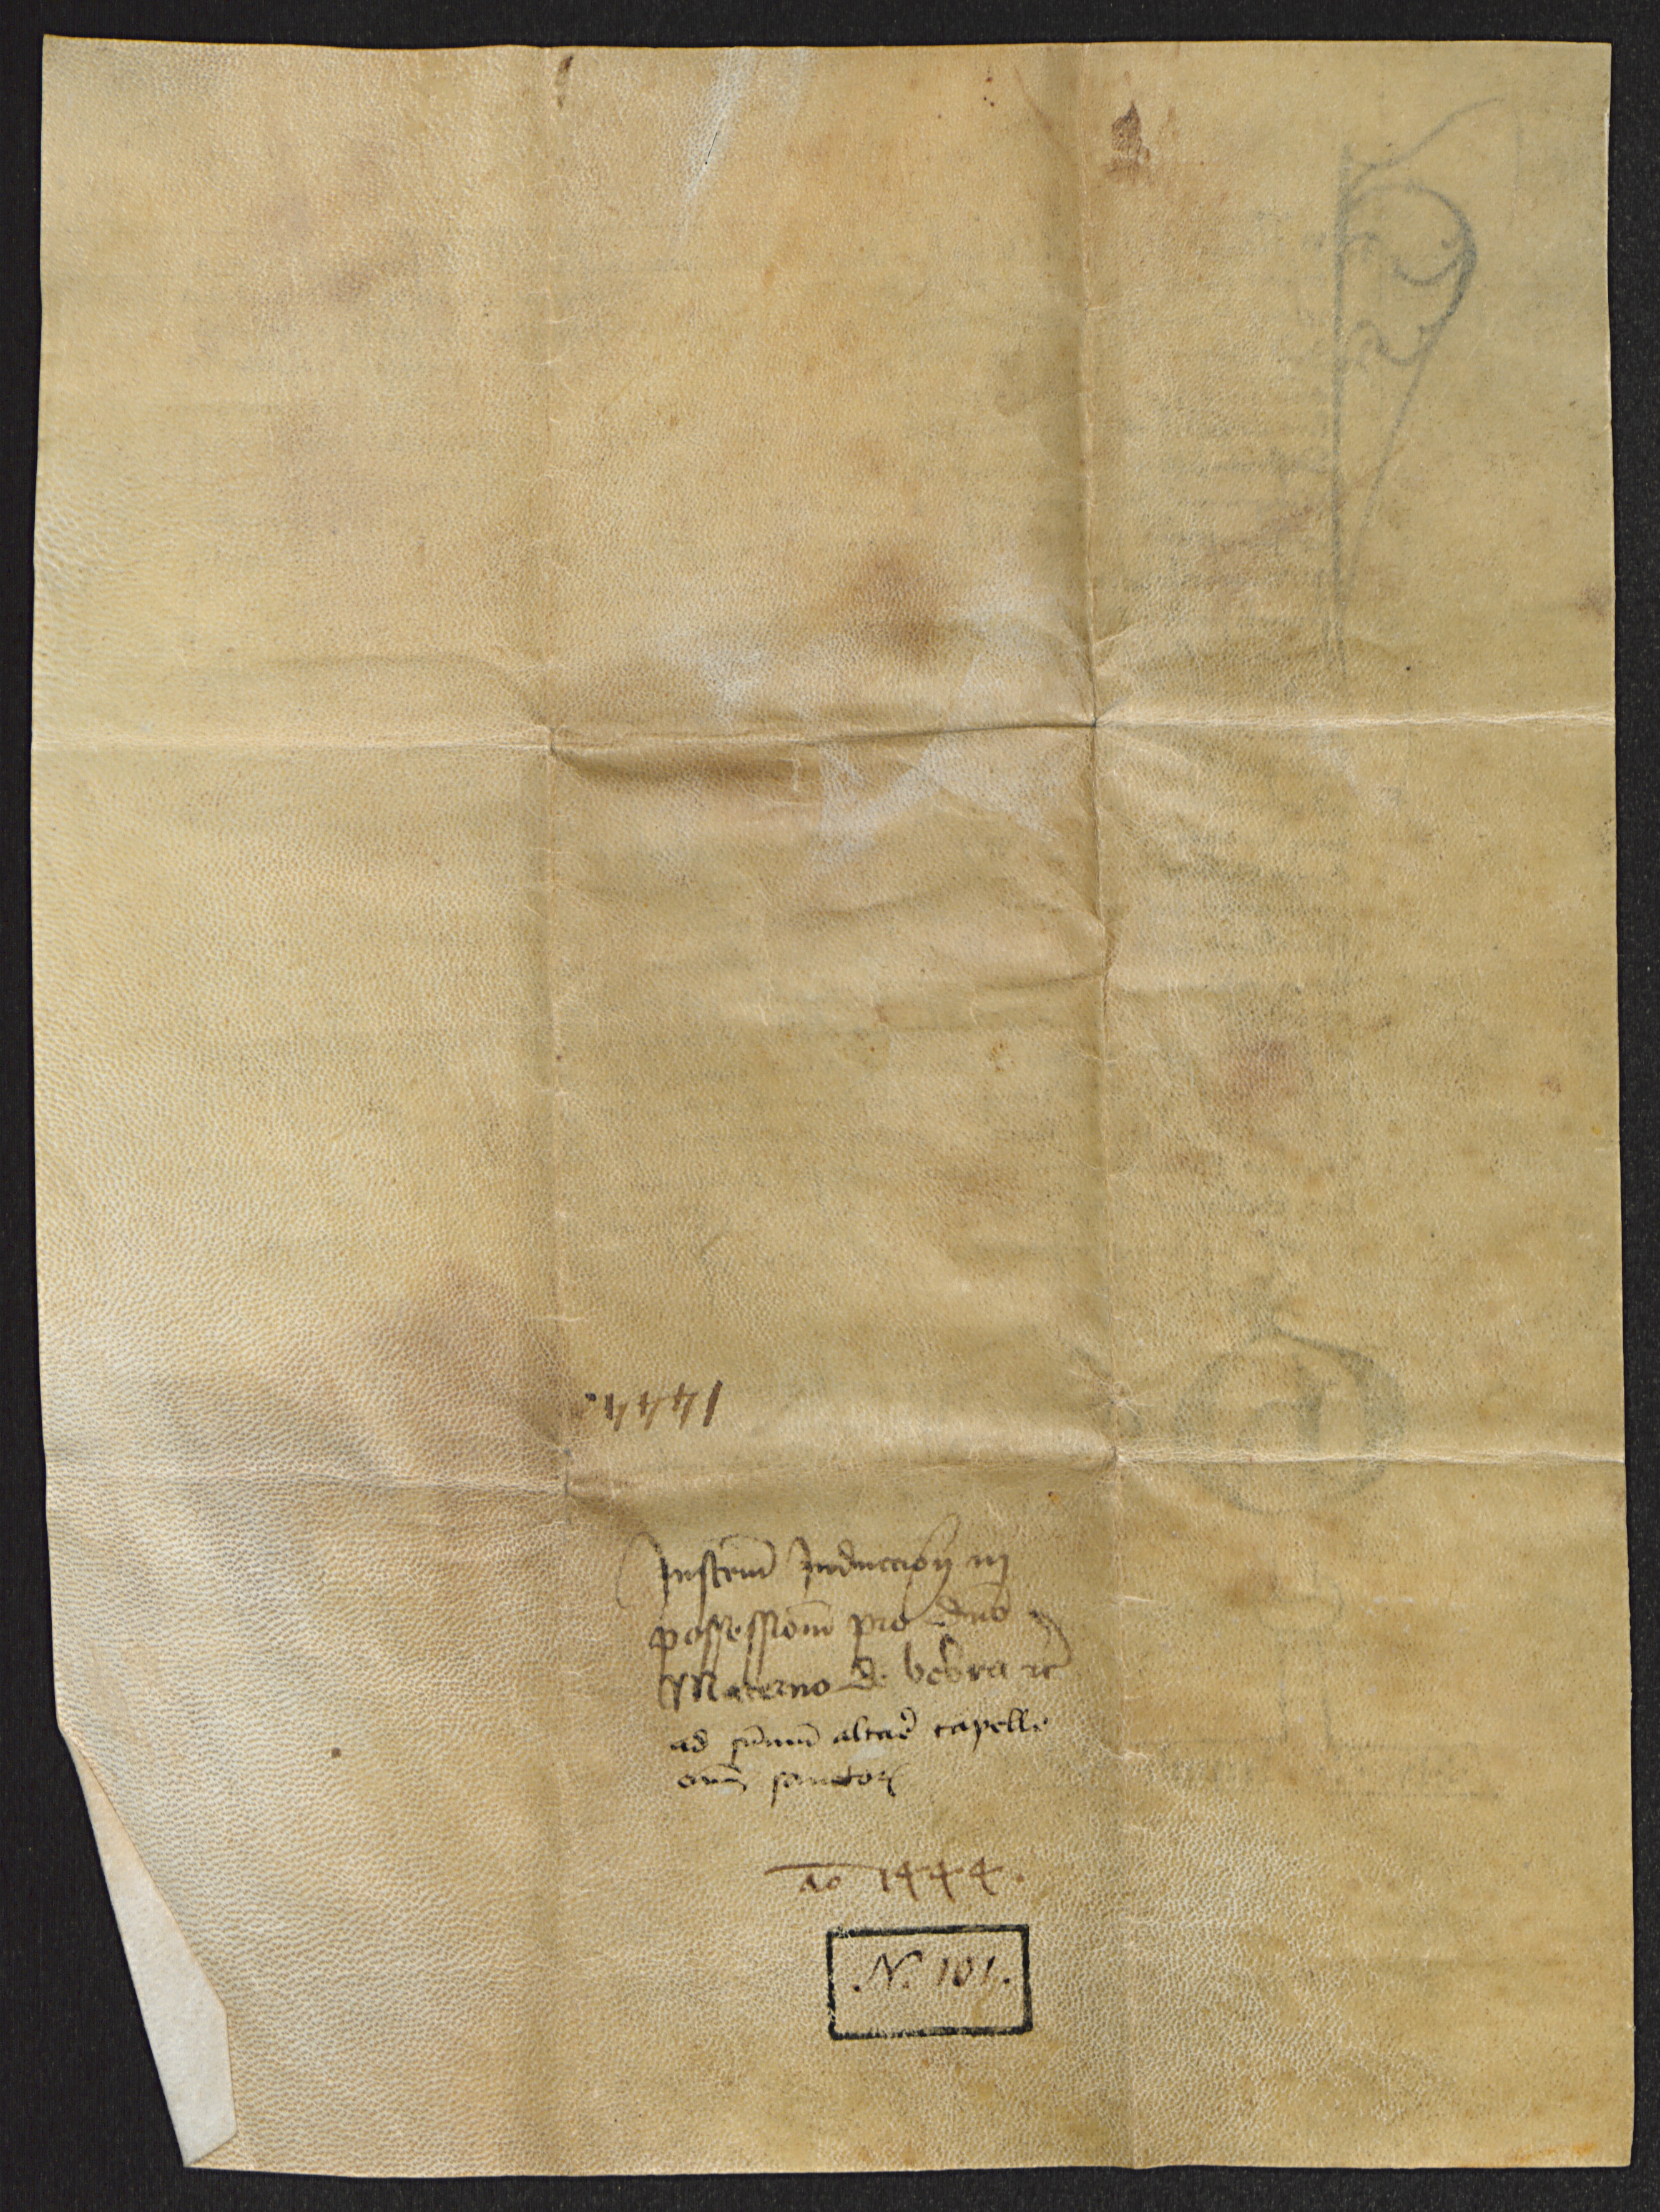 1444
Instrum̄ Inducciōn in
possessionē pro dn̄o
Materno de bebra ꝛc̄
ad sūmū altar̄e capelle
om̄ sanctoꝝ
ao 1444.
N. 101.